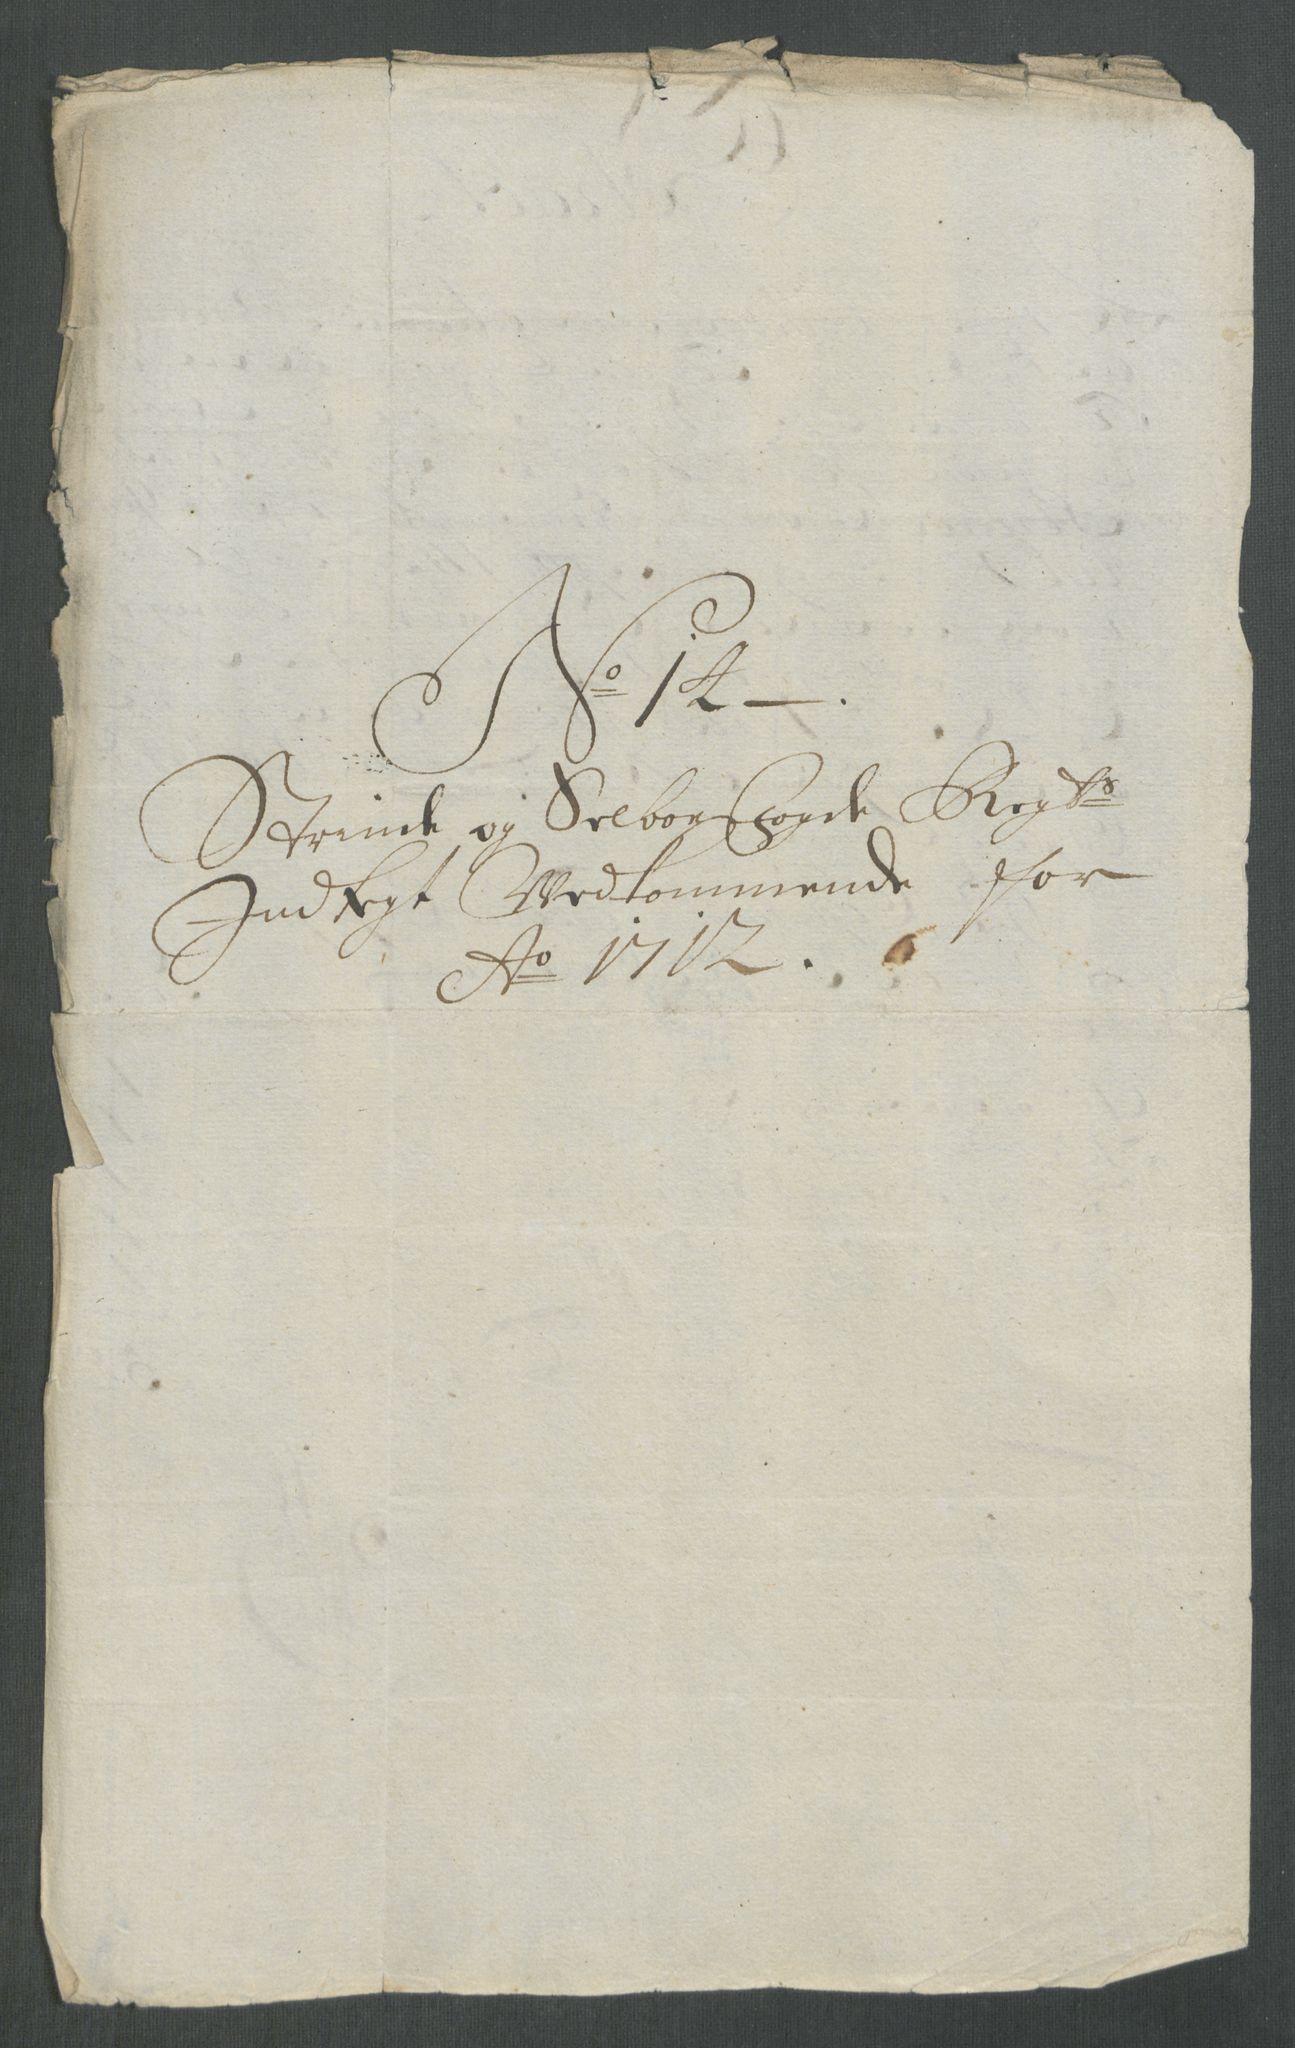 No 14 — .
Strinde og Selboe fogde Regks
Indtegt Vedkommende for
Ao 1712 .